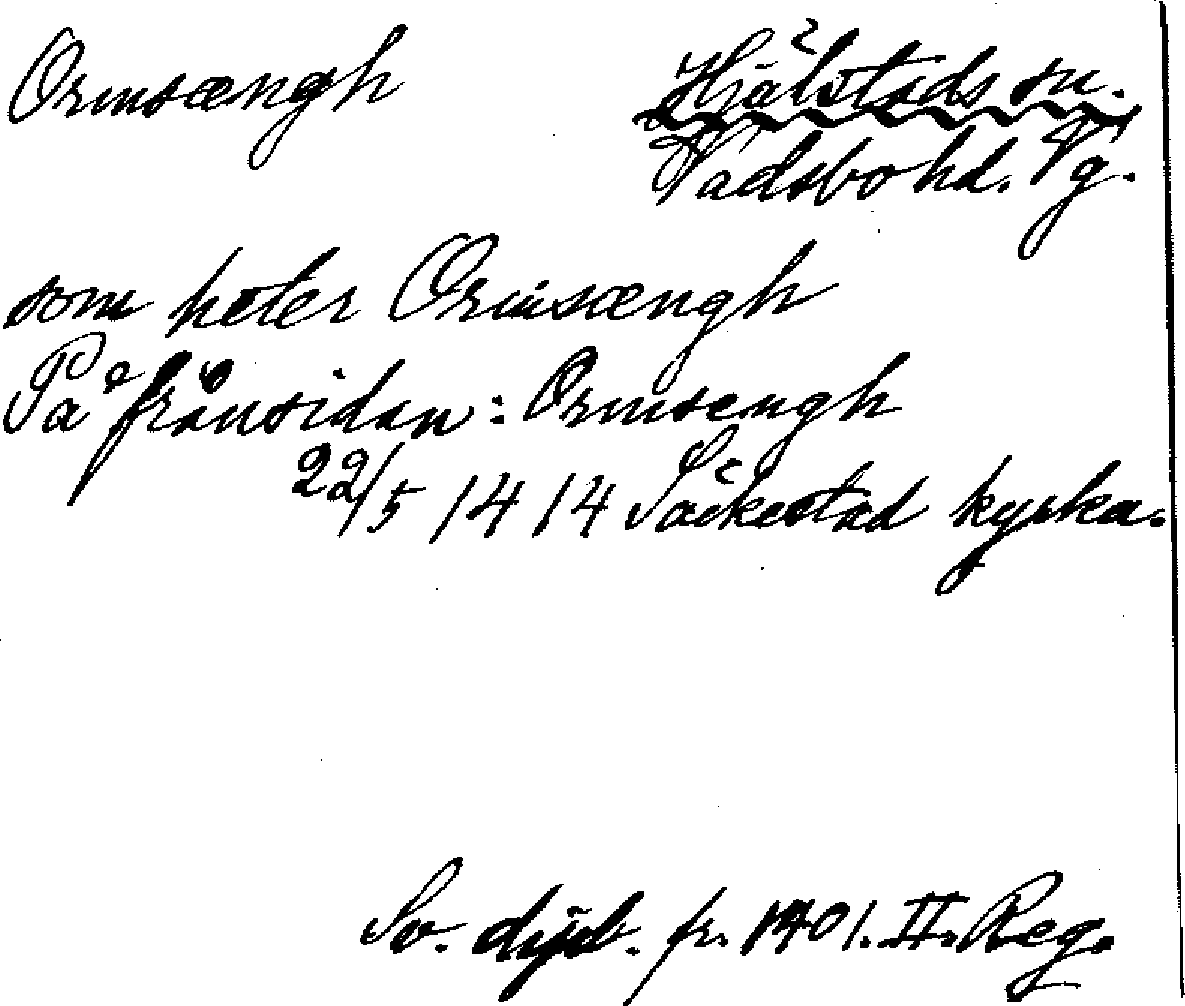 Ormsængh
Hjälstads sn.
Vadsbo hd. Vg.
som heter Ormsængh
På frånsidan: Ormsengh
22/5 1414 Säckestad kyrka.
Sv. dipl. fr. 1401. II. Reg.